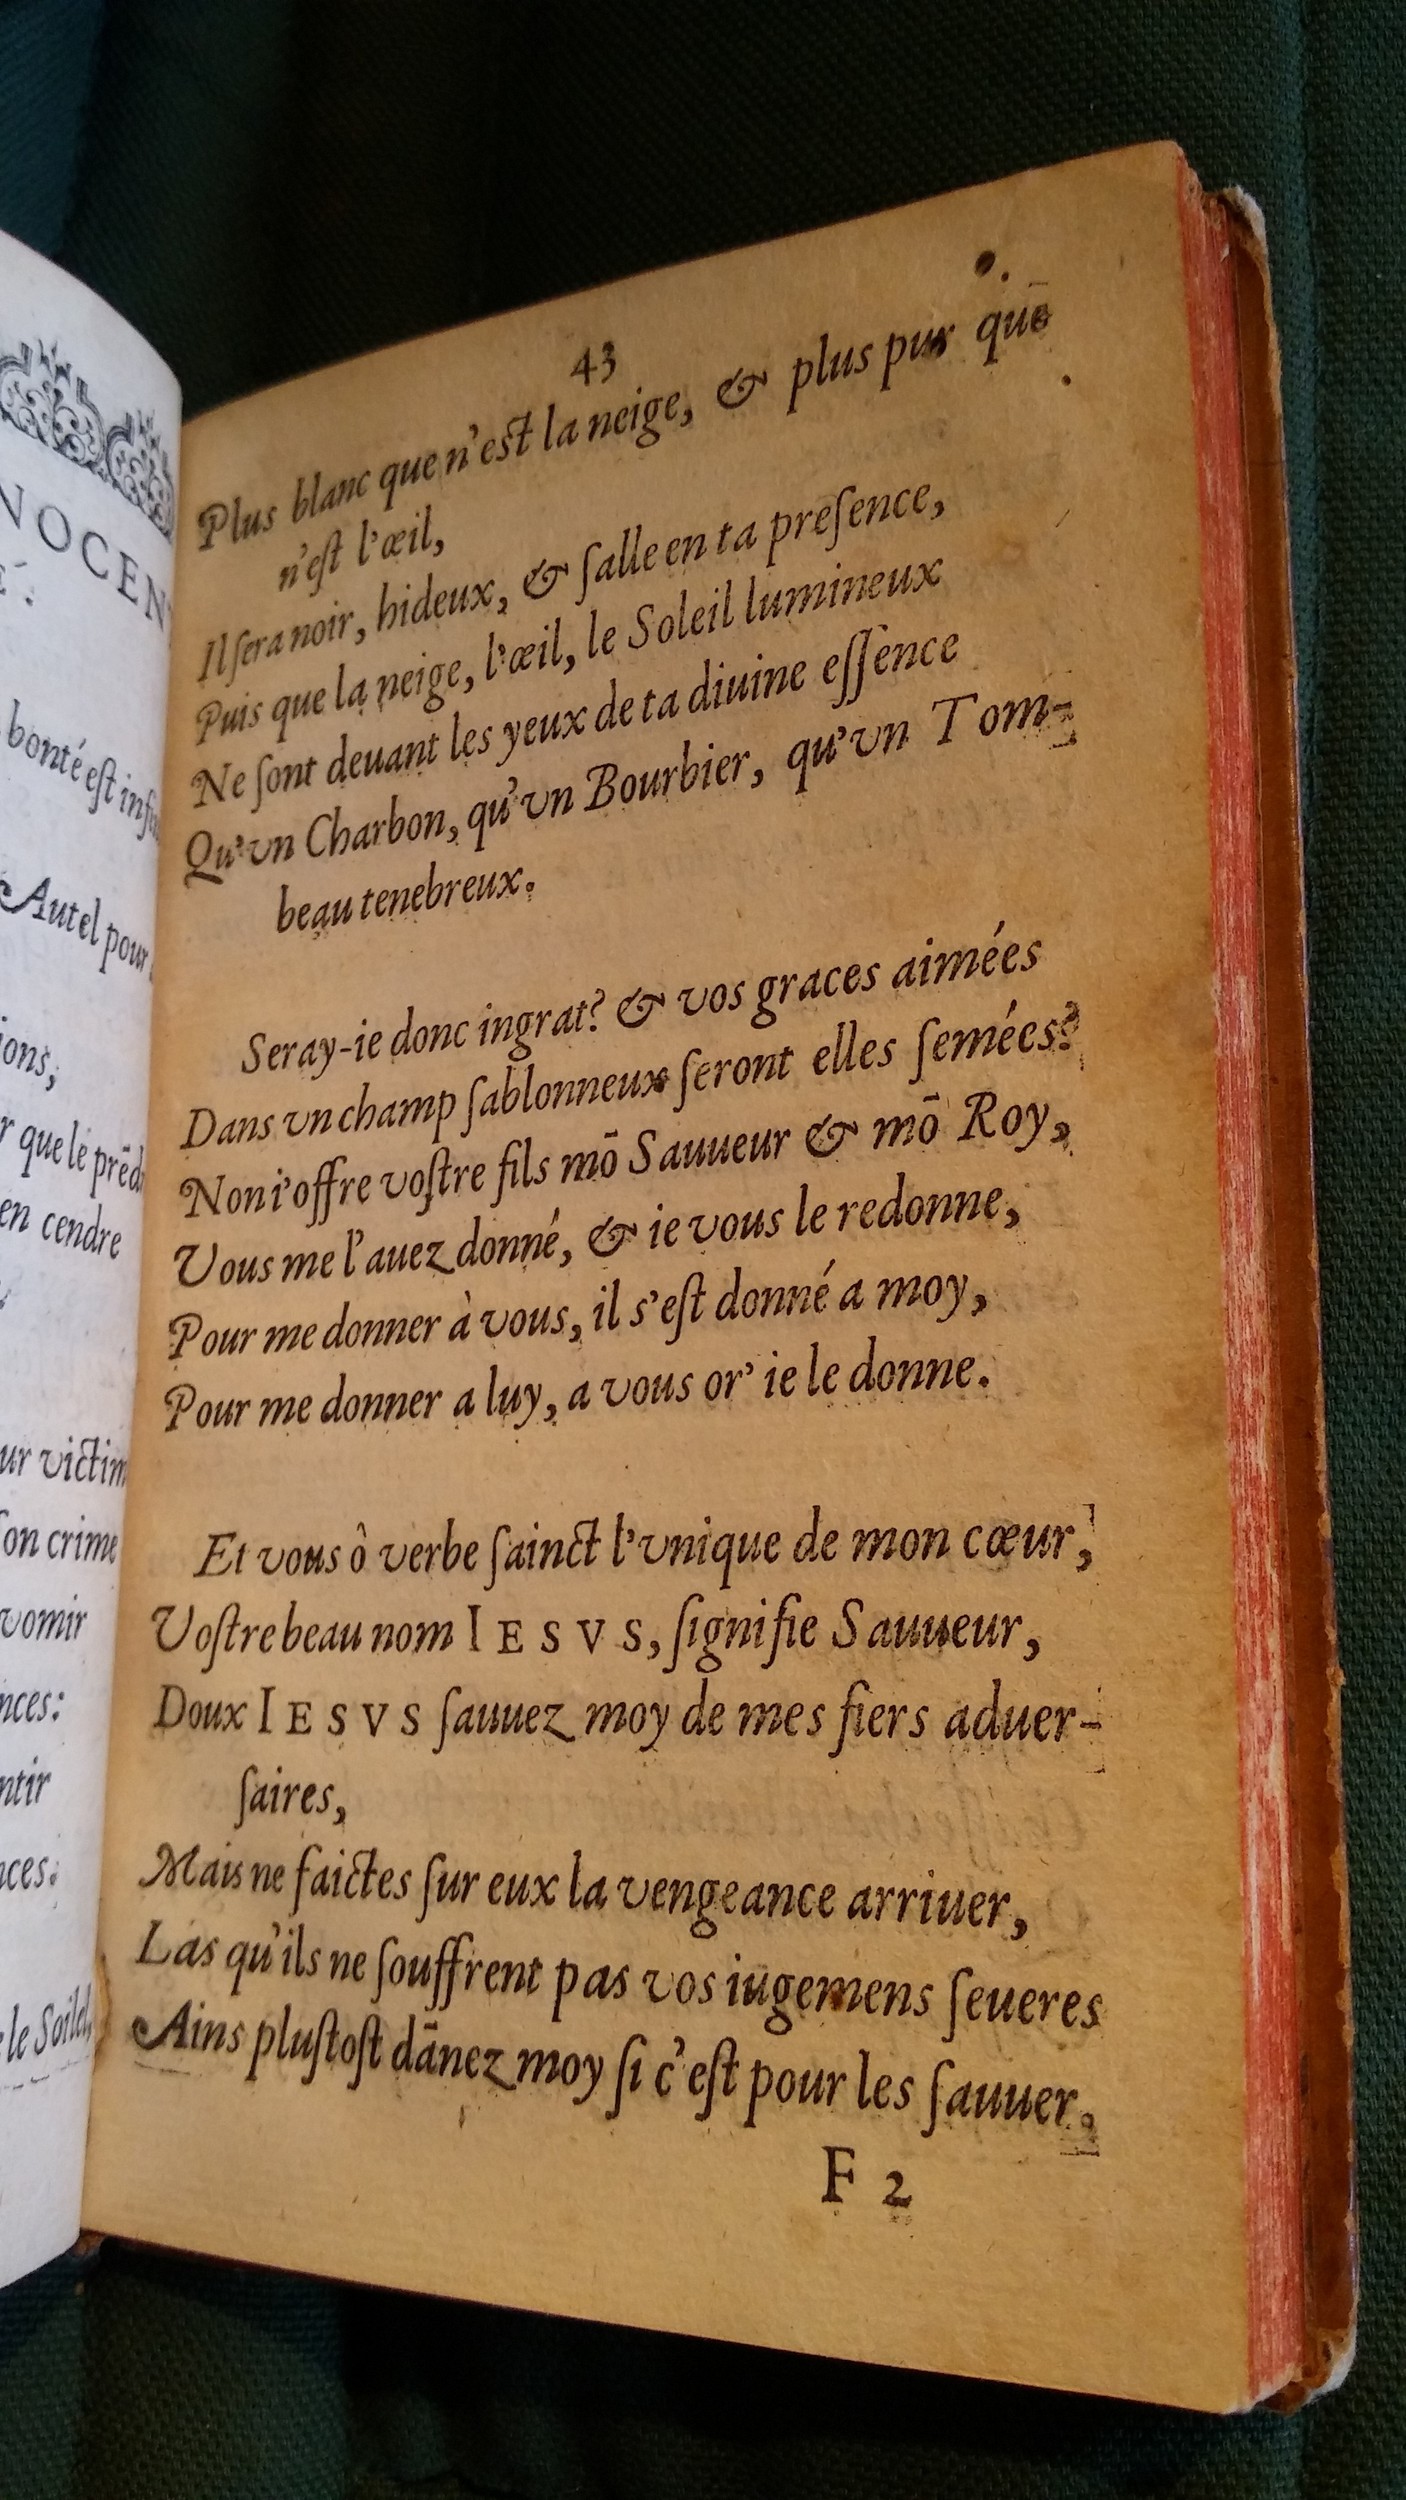 VOCEN
bonté est infi
Autel pour
ions,
que le prēd
en cendre
ur victim
ſon crime
vomir
nces:
ntir
nces.
le Soilel,
43
Plus blanc que n'eſt la neige, & plus pur que
n'eſt l'œil,
Il ſera noir, hideux, & ſalle en ta preſence,
Puis que la neige, l'œil, le Soleil lumineux
Ne ſont deuant les yeux de ta diuine eſſence
Qu'vn Charbon, qu'vn Bourbier, qu'vn Tom-
beau tenebreux.
Seray-ie donc ingrat? & vos graces aimées
Dans vn champ ſablonneux ſeront elles ſemées?
Non i'offre voſtre fils mō Sauueur & mō Roy,
Vous me l'auez donné, & ie vous le redonne,
Pour me donner à vous, il s'eſt donné a moy,
Pour me donner a luy, a vous or' ie le donne.
Et vous ô verbe ſainct l'vnique de mon cœur,
Voſtre beau nom IESVS, ſignifie Sauueur,
Doux IESVS ſauuez moy de mes fiers aduer-
ſaires,
Mais ne faictes ſur eux la vengeance arriuer,
Las qu'ils ne ſouffrent pas vos iugemens ſeueres
Ains pluſtoſt dānez moy ſi c'eſt pour les ſauuer,
F 2